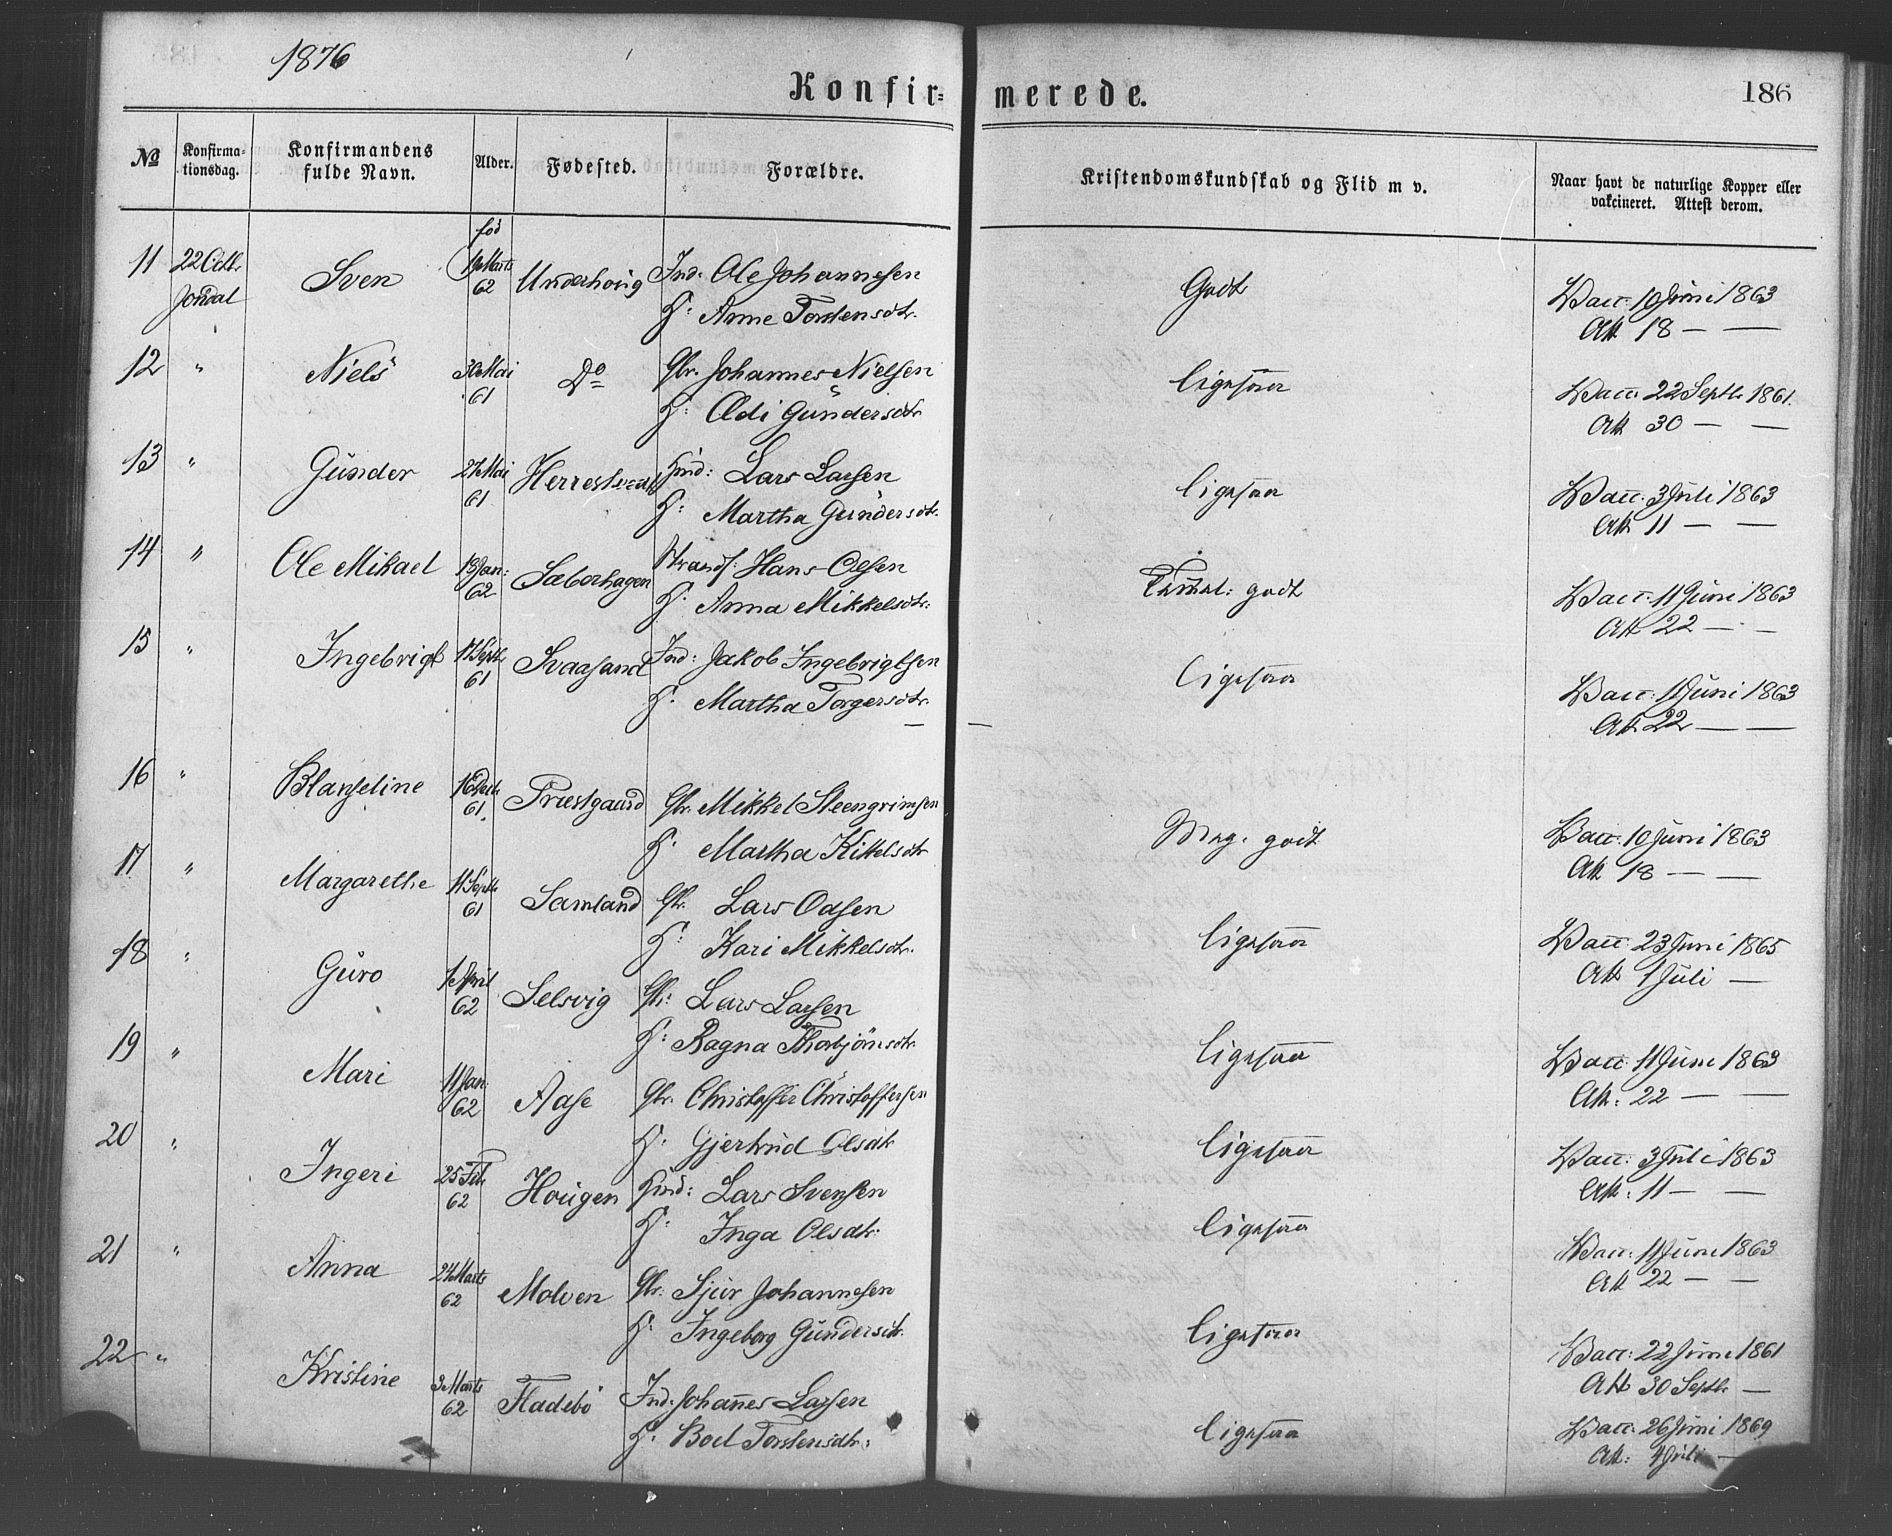 1876
Konfirmerede. 186
No Konfirmationsdag. Konfirmandens fulde Navn. Alder. Fødested. Forældre. Kristendomskundskab og Flid m v. Naar havt de naturlige Kopper eller vakcineret. Attest derom.
fød
11 22 Octbr Sven Marts Underhoug Ind: Ole Johannesen Godt Vacc: 10 Juni 1863
Jondal 62 H: Anne Torstensdtr. Att 18 — —
12 " Niels Mai Do Gbr. Johannes Nielsen Ligesaa Vacc: 22 Septbr 1861.
61 H: Ædi Gundersdtr Att 30 — —
13 " Gunder 27 Mai Herrestvedt Lars Larsen Ligesaa Vacc: 3 Juli 1863
61 H: Martha Gundersdtr. Att 11 — —
14 " Ole Mikael 13 Jan: Sæberhagen Strands: Hans Olsen godt Vacc: 11 Juni 1863
62 H: Anna Mikkelsdtr: Att 22 — —
15 " Ingebrigt 17 Septbr Svaasand Ind: Jakob Ingebrigtsen Ligesaa Vacc: 11 Juni 1863
61 H. Martha Torgersdtr. Att 22 — —
16 " Blanseline Præstgaard Gbr. Mikkel Steengrimsen Meg. godt Vacc: 10 Juni 1863
61. H. Martha Kittelsdtr Att 18 — —
17 " Margarethe 11 Septbr Samland Gbr. Lars Odsen Ligesaa Vacc: 23 Juni 1865
61 H: Kari Mikkelsdtr. Att 1 Juli —
18 " Guro 1 April Selsvig Gbr: Lars Larsen Ligesaa Vacc: 11 Juni 1863
62 H: Ragna Thorbjörnsdtr. Att: 22 — —
19 " Mari 11 Jan Aase Gbr. Christoffer Christoffersen Ligesaa Vacc: 3 Juli 1863
62 H. Gjertrud Olsdtr Att: 11 — —
20 " Ingeri 25 Feb. Hougen Lars Svensen Ligesaa Vacc: 11 Juni 1863
62 H. Inga Olsdtr. Att 22 — —
21 " Anna 24 Marts Molven Gbr: Sjur Johannesen Ligesaa Vacc: 22 Juni 1861
62 H: Ingeborg Gundersdtr. Att 30 Septbr —
22 " Kristine 3 Marts Fladebö Ind: Johannes Larsen Ligesaa Vacc: 26 Juni 1869
62 H. Boel Torstensdtr: Att: 4 Juli —